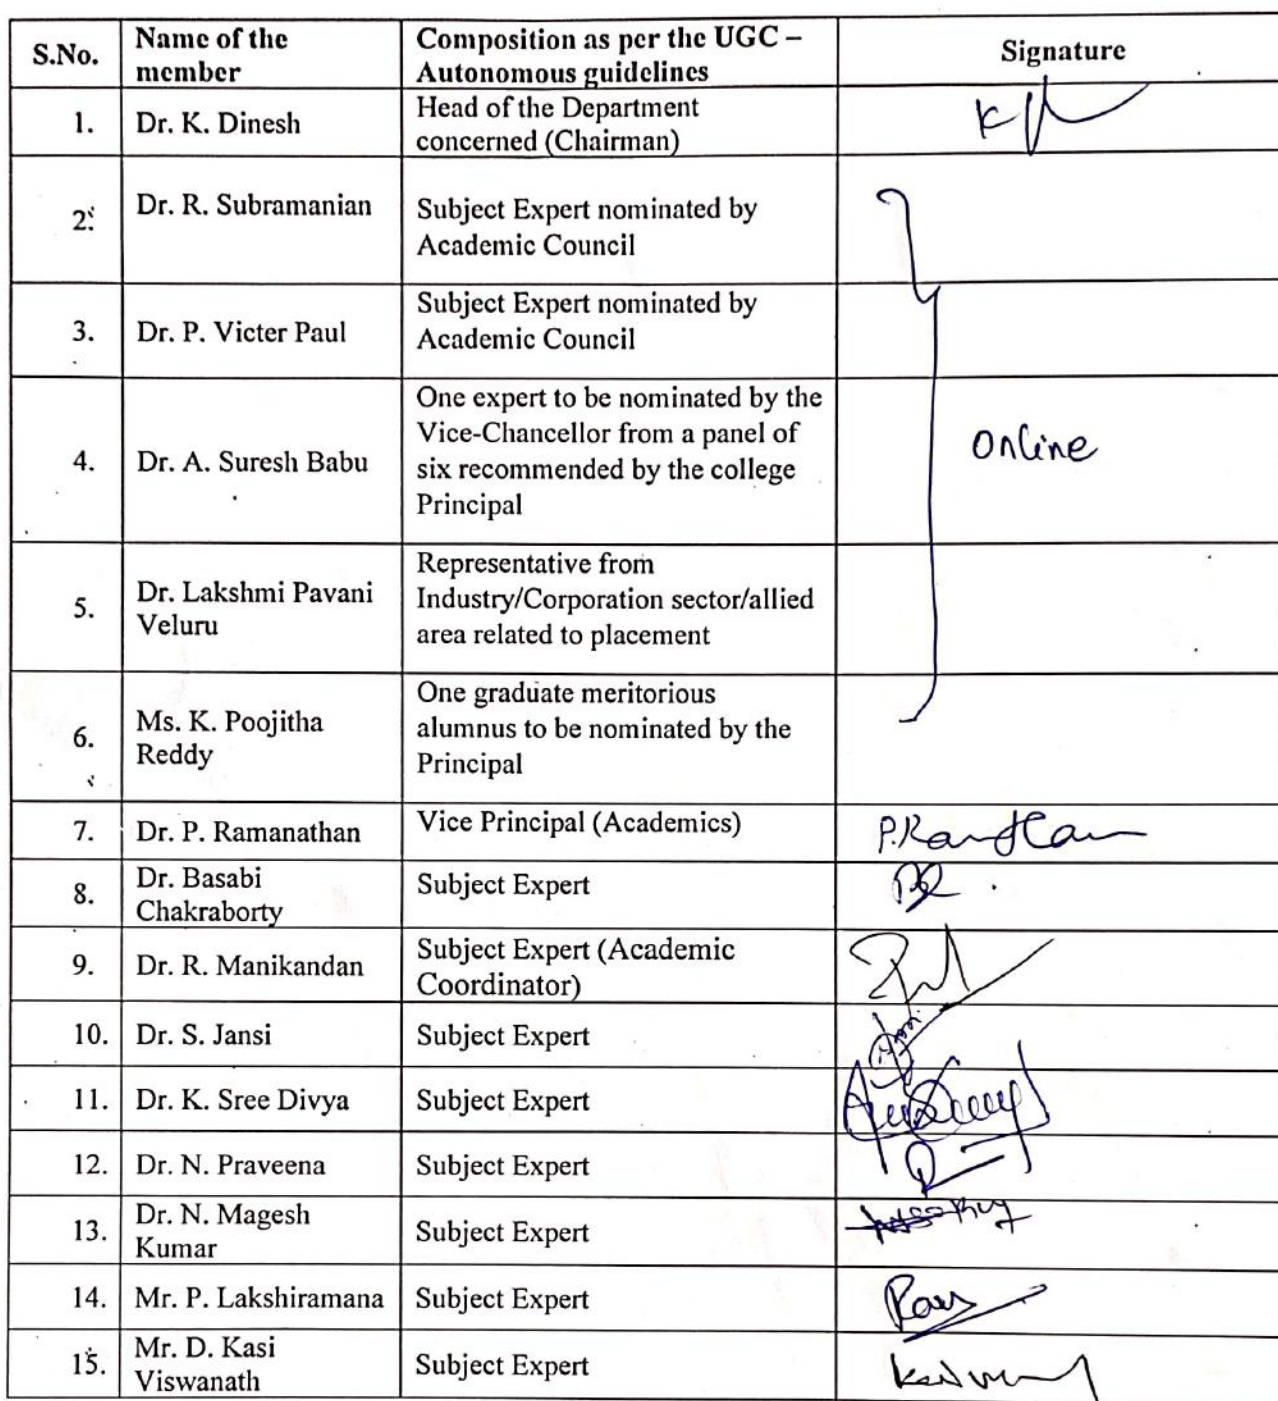 S.No.
Name of the
member
Composition as per the UGC –
Autonomous guidelines
Signature
1.
Dr. K. Dinesh
Head of the Department
concerned (Chairman)
2.
Dr. R. Subramanian
Subject Expert nominated by
Academic Council
3.
Dr. P. Victer Paul
Subject Expert nominated by
Academic Council
4.
Dr. A. Suresh Babu
One expert to be nominated by the
Vice-Chancellor from a panel of
six recommended by the college
Principal
Online
5.
Dr. Lakshmi Pavani
Veluru
Representative from
Industry/Corporation sector/allied
area related to placement
6.
Ms. K. Poojitha
Reddy
One graduate meritorious
alumnus to be nominated by the
Principal
7.
Dr. P. Ramanathan
Vice Principal (Academics)
8.
Dr. Basabi
Chakraborty
Subject Expert
9.
Dr. R. Manikandan
Subject Expert (Academic
Coordinator)
10.
Dr. S. Jansi
Subject Expert
11.
Dr. K. Sree Divya
Subject Expert
12.
Dr. N. Praveena
Subject Expert
13.
Dr. N. Magesh
Kumar
Subject Expert
14.
Mr. P. Lakshiramana
Subject Expert
15.
Mr. D. Kasi
Viswanath
Subject Expert